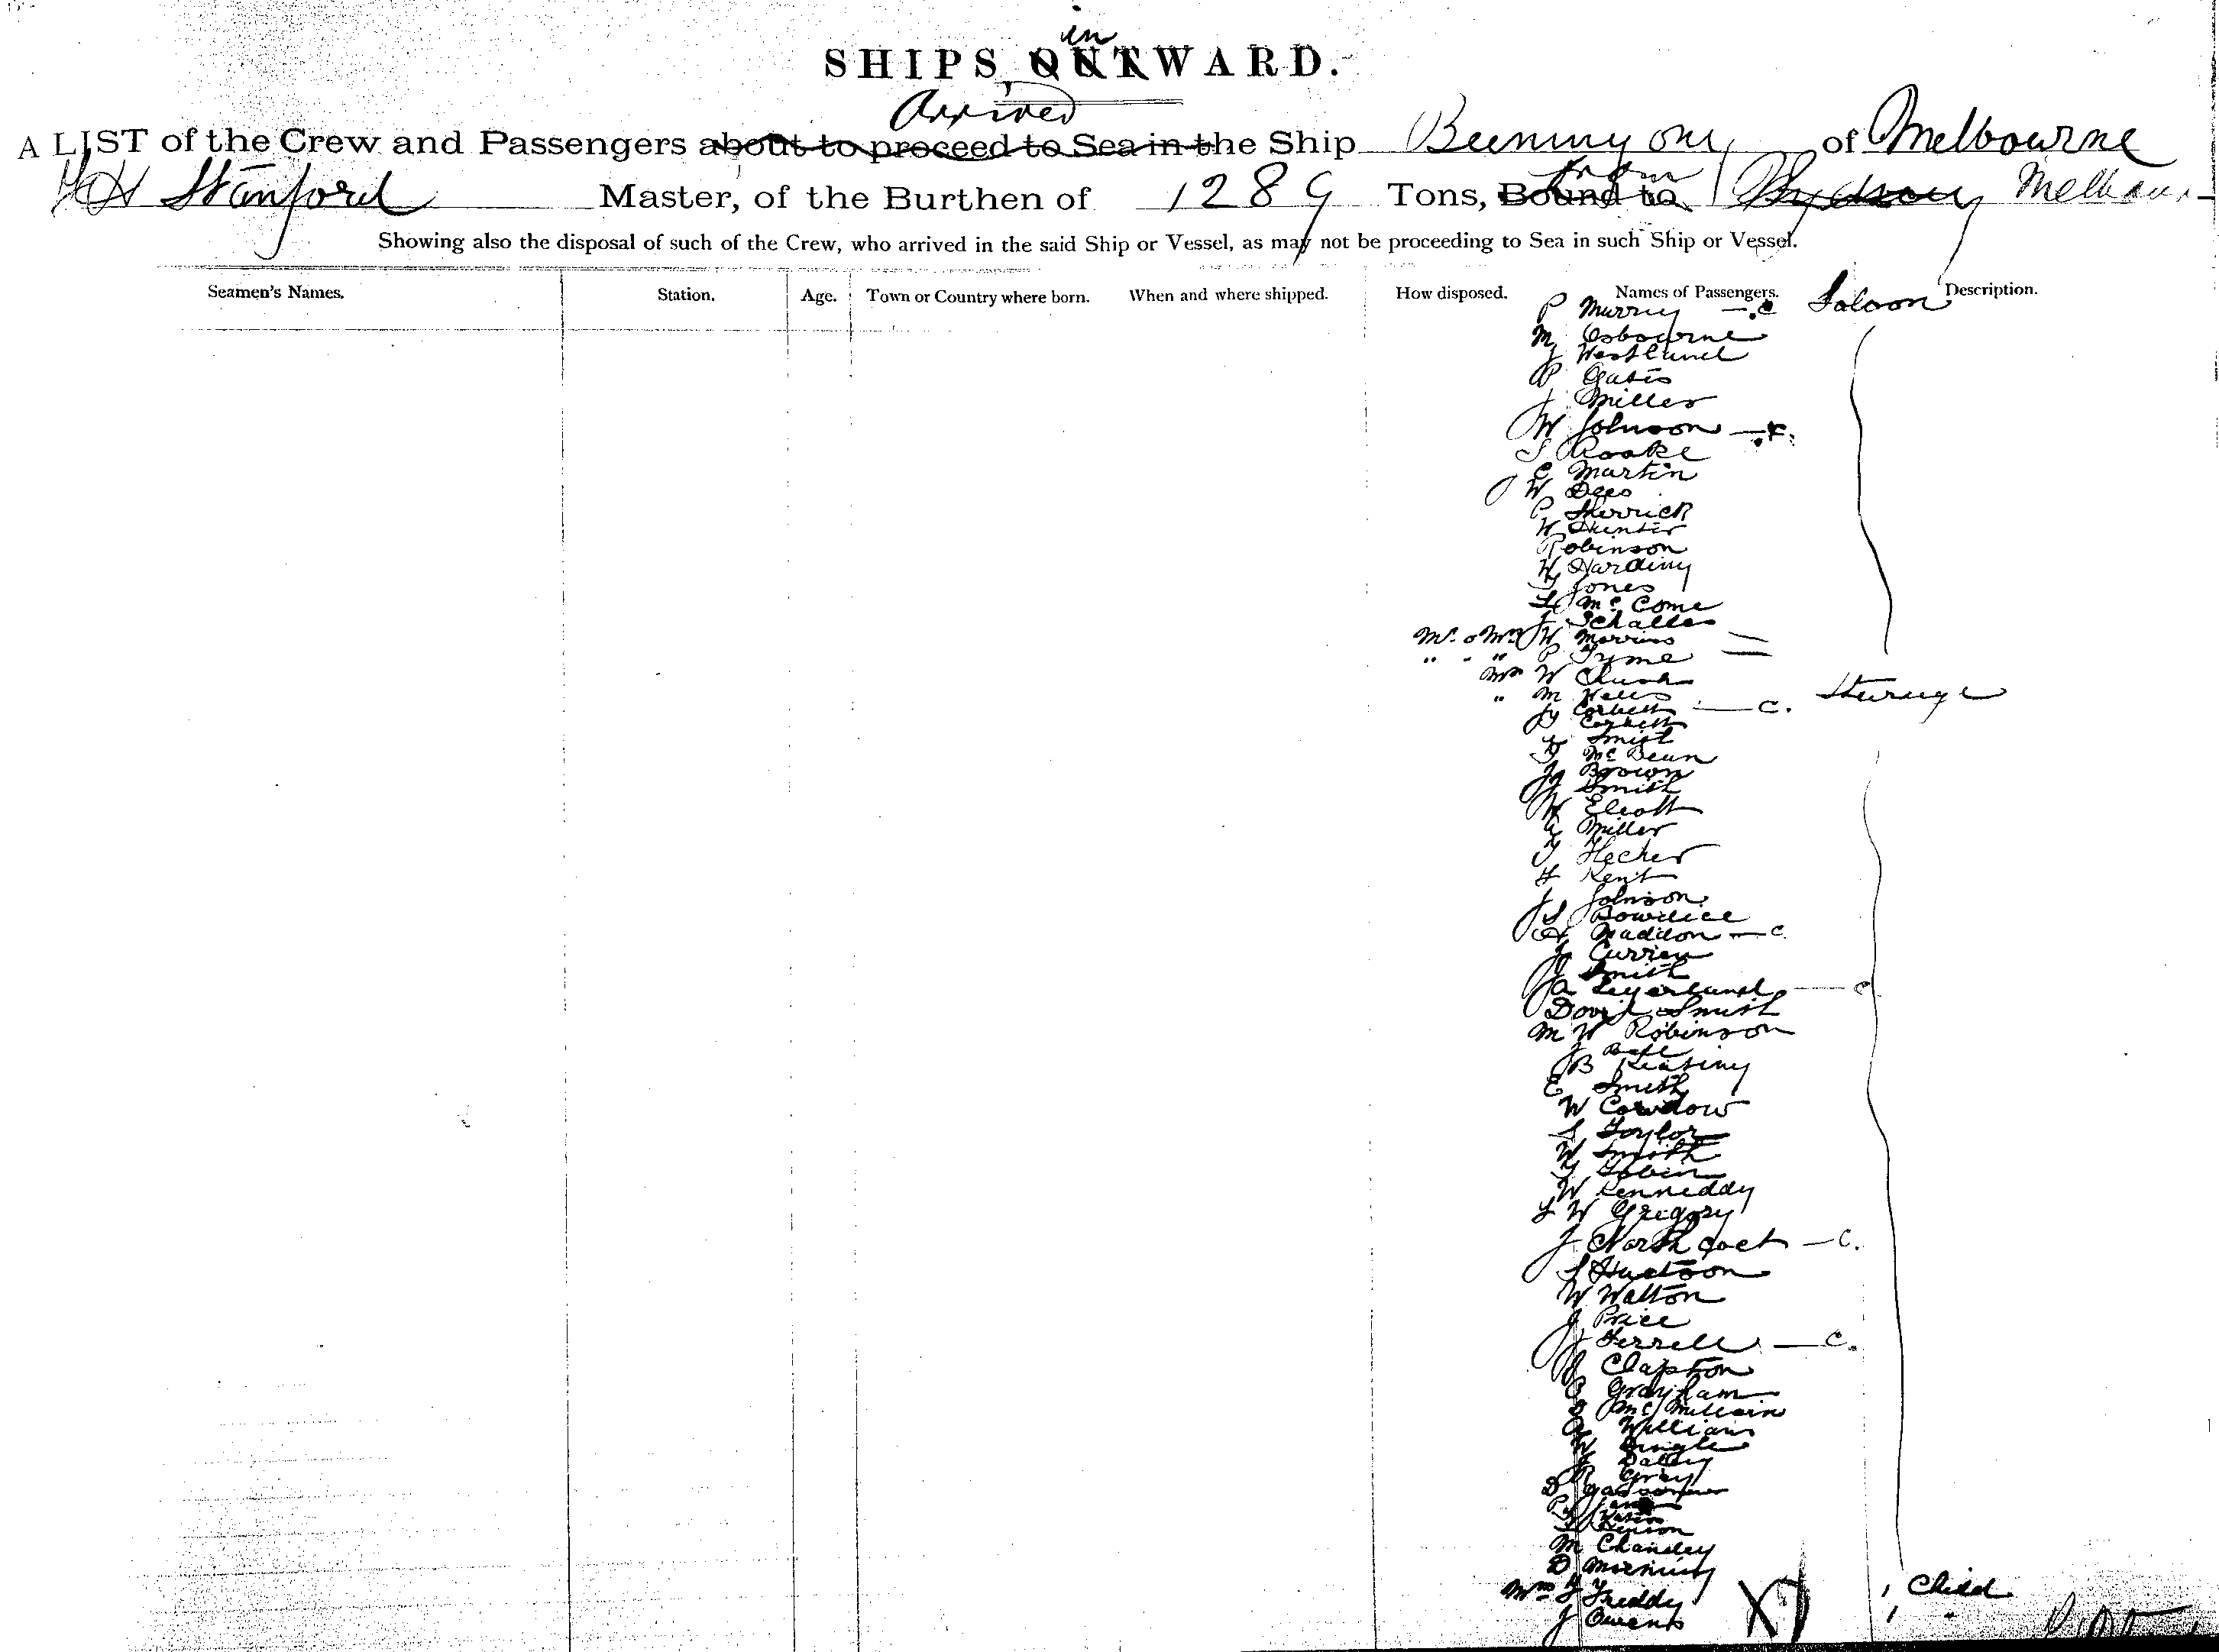 in
SHIPS OUTWARD.
Arrived
A LIST of the Crew and Passengers about to proceed to Sea in the Ship Buninyong of Melbourne
from
H H Stanford Master, of the Burthen of 1289 Tons, Bound to Sydney
Showing also the disposal of such of the Crew, who arrived in the said Ship or Vessel, as may not be proceeding to Sea in such Ship or Vessel.
Seamen's Names. Station. Age. Town or Country where born. When and where shipped. How disposed. Names of Passengers. Description.
P Murray — c Saloon
M Osbourne
J Westland
P Oates
J Miller
W Johnson
S Rooke
E Martin
W Dees
P Herrick
W Hunter
Robinson
W Harding
J Jones
L Mc Come
J
Mr & Mrs W Morriss
" " P Pyme
Mrs W
" M Wells Steerage
J Corbett — c.
J Corbett
J Smith
J Mc Bean
J Brown
J Smith
W Eliott
G Miller
J Hecher
H Kent
J Johnson
J S
A Maddon — c
J Curriew
J Smith
J A — c
David Smith
M W Robinson
J Bell
B Keating
E Smith
W Cowdow
S Taylor
W Smith
J Tobin
W Kenneddy
L W Gregory
J North coet — c.
S Huetson
W Walton
J Price
J Ferrell — c.
J Clapton
C Grayham
D McMillain
A Williams
W Dingle
J Dalley
R Gray
D
P
J
Henson
M Chanley
D Morning
Mrs J Freddy 1 Child
J Owens 1 "